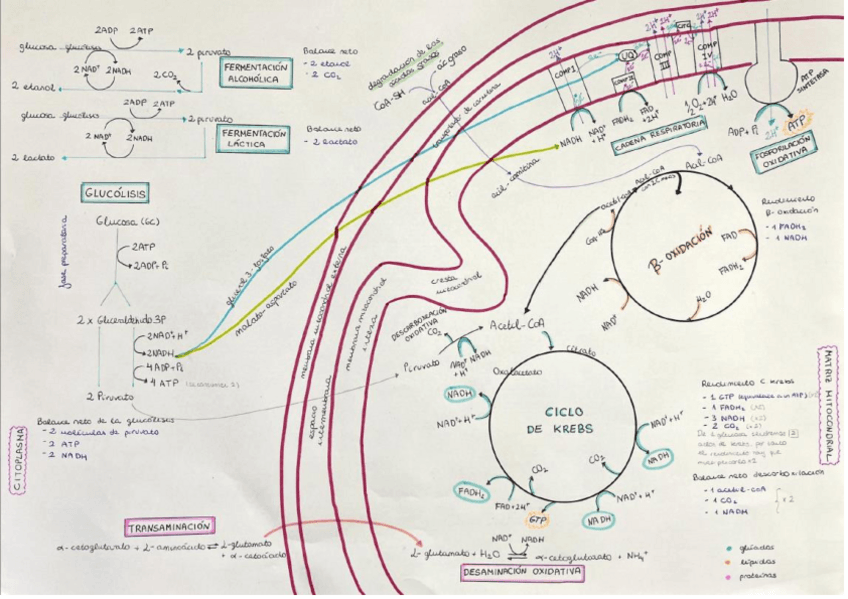 2ADP 2ATP
glucosa glucólisis 2 piruvato
2NAD⁺ 2NADH
2CO₂
2 etanol
FERMENTACIÓN
ALCOHÓLICA
Balance neto
- 2 etanol
- 2 CO₂
2ADP 2ATP
glucosa glucólisis 2 piruvato
2 NAD⁺ 2 NADH
2 lactato
FERMENTACIÓN
LÁCTICA
Balance neto
- 2 lactato
GLUCÓLISIS
fase preparatoria
Glucosa (6C)
2ATP
2ADP+Pi
2 x Gliceraldehído 3P
2NAD⁺+H⁺
2NADH
4 ADP+Pi
4 ATP
2 Piruvato
Balance neto de la glucólisis
- 2 moléculas de piruvato
- 2 ATP
- 2 NADH
CITOPLASMA
glicerol 3-fosfato
malato-aspartato
membrana mitocondrial externa
espacio
intermembrana
membrana mitocondrial
interna
cresta
mitocondrial
degradación de los
ácidos grasos
ác graso
CoA-SH
acil-CoA
transportador de carnitina
acil-carnitina
Acil-CoA
COMP I
UQ
COMP II
COMP
III
Cit C
COMP
IV
2H⁺
NADH
NAD⁺
+ H⁺
FADH₂
FAD
+2H⁺
½O₂+2H⁺
H₂O
CADENA RESPIRATORIA
ATP
SINTETASA
ADP+Pi
2H⁺
ATP
FOSFORILACIÓN
OXIDATIVA
acetil-CoA
Acil-CoA
CoA-SH
β-OXIDACIÓN
FAD
FADH₂
H₂O
NAD⁺
NADH
Rendimiento
β-oxidación
- 1 FADH₂
- 1 NADH
DESCARBOXILACIÓN
OXIDATIVA
CO₂
Piruvato
NAD⁺
+ H⁺
NADH
Acetil-CoA
Oxalacetato
Citrato
CICLO
DE KREBS
NADH
NAD⁺+H⁺
NAD⁺+H⁺
NADH
CO₂
CO₂
FADH₂
FAD+2H⁺
GTP
NADH
NAD⁺+H⁺
Rendimiento C Krebs
- 1 GTP (equivalente a un ATP)
- 1 FADH₂ (x2)
- 3 NADH (x2)
- 2 CO₂ (x2)
Balance neto descarboxilación
- 1 acetil-CoA
- 1 CO₂
- 1 NADH
x 2
MATRIZ MITOCONDRIAL
TRANSAMINACIÓN
α-cetoglutarato + L-aminoácido ⇌ L-glutamato
+ α-cetoácido
NAD⁺ NADH
L-glutamato + H₂O ⇌ α-cetoglutarato + NH₄⁺
DESAMINACIÓN OXIDATIVA
glúcidos
lípidos
proteínas